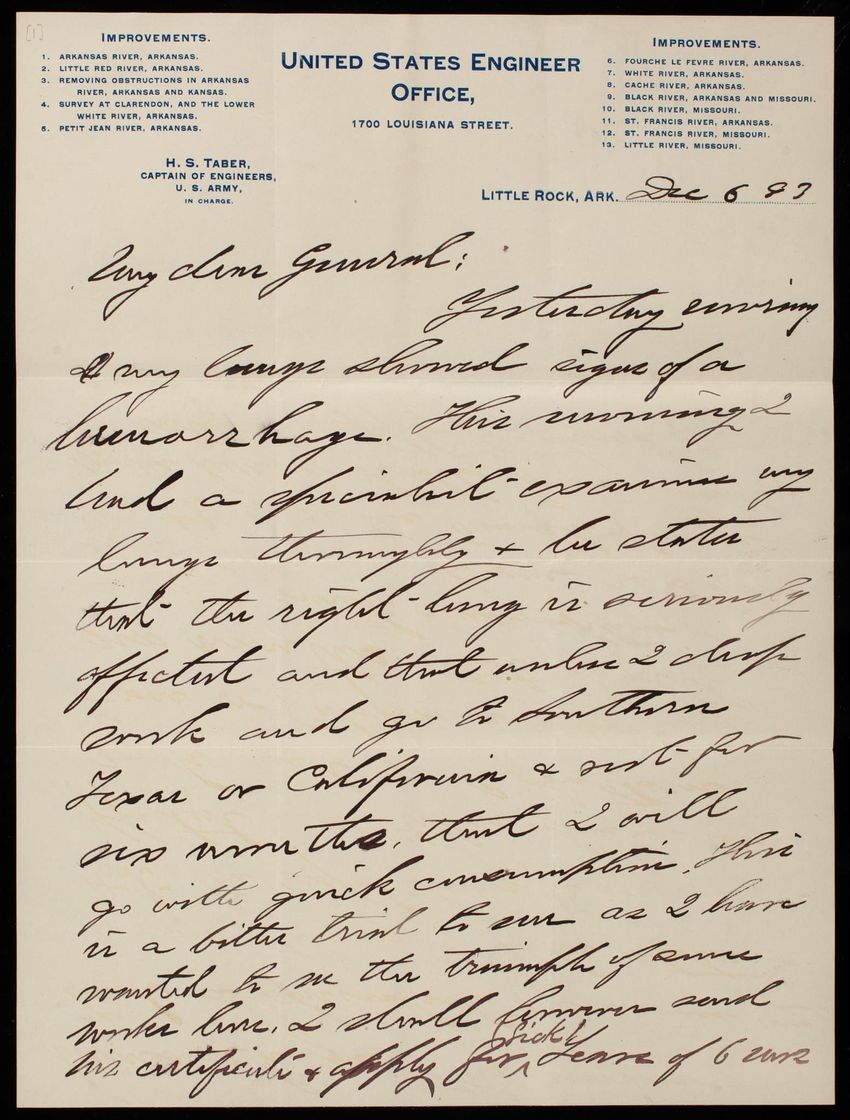 [1]
IMPROVEMENTS.
1. ARKANSAS RIVER, ARKANSAS.
2. LITTLE RED RIVER, ARKANSAS.
3. REMOVING OBSTRUCTIONS IN ARKANSAS
RIVER, ARKANSAS AND KANSAS.
4. SURVEY AT CLARENDON, AND THE LOWER
WHITE RIVER, ARKANSAS.
5. PETIT JEAN RIVER, ARKANSAS.
H. S. TABER,
CAPTAIN OF ENGINEERS,
U. S. ARMY,
IN CHARGE.
UNITED STATES ENGINEER
OFFICE,
1700 LOUISIANA STREET.
IMPROVEMENTS.
6. FOURCHE LE FEVRE RIVER, ARKANSAS.
7. WHITE RIVER, ARKANSAS.
8. CACHE RIVER, ARKANSAS.
9. BLACK RIVER, ARKANSAS AND MISSOURI.
10. BLACK RIVER, MISSOURI.
11. ST. FRANCIS RIVER, ARKANSAS.
12. ST. FRANCIS RIVER, MISSOURI.
13. LITTLE RIVER, MISSOURI.
LITTLE ROCK, ARK. Dec 6 93
My dear General:
Yesterday evening
my lungs showed signs of a
hemorrhage. This morning I
had a specialist examine my
lungs thoroughly & he states
that the right lung is seriously
affected and that unless I drop
work and go to Southern
Texas or California & rest for
six months, that I will
go with quick consumption. This
is a bitter trial to me as I have
wanted to see the triumph of some
works here. I shall however send
his certificate & apply for sick leave of 6 mos